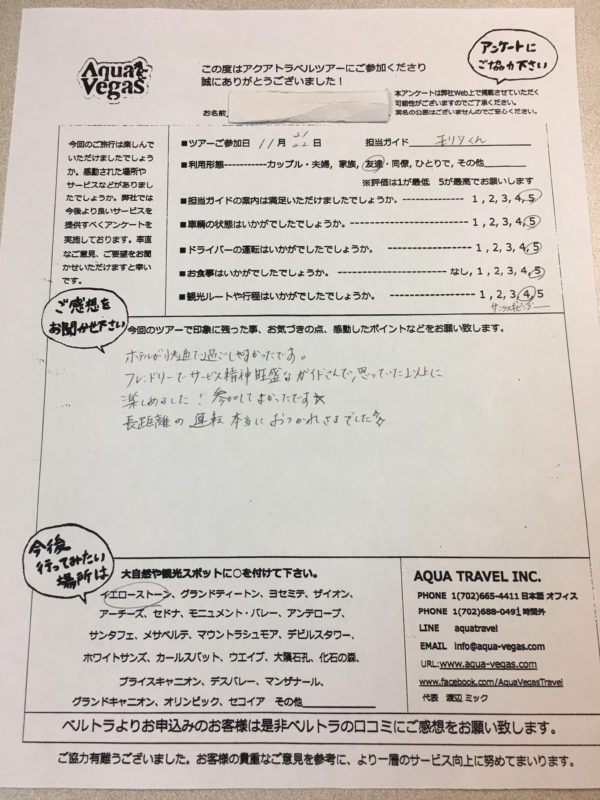 Aqua Vegas
この度はアクアトラベルツアーにご参加くださり
誠にありがとうございました！
アンケートに
ご協力下さい
本アンケートは弊社Web上で掲載させていただく
可能性がございますのでご了承ください。
実名の公表はございませんのでご安心ください。
お名前
今回のご旅行は楽しんで
いただけましたでしょう
か。感動された場所や
サービスなどがありまし
たでしょうか。弊社では
今後より良いサービスを
提供すべくアンケートを
実施しております。率直
なご意見、ご要望をお聞
かせいただけますと幸い
です。
■ツアーご参加日 11月 21 22日 担当ガイド モリタくん
■利用形態-----------カップル・夫婦, 家族, 友達・同僚, ひとりで, その他
※評価は1が最低 5が最高でお願いします
■担当ガイドの案内は満足いただけましたでしょうか。--------------- 1, 2, 3, 4, 5
■車輌の状態はいかがでしたでしょうか。------------------ 1, 2, 3, 4, 5
■ドライバーの運転はいかがでしたでしょうか。------------------ 1, 2, 3, 4, 5
■お食事はいかがでしたでしょうか。------------------ なし, 1, 2, 3, 4, 5
■観光ルートや行程はいかがでしたでしょうか。------------------ 1, 2, 3, 4, 5
ご感想を
お聞かせ下さい
今回のツアーで印象に残った事、お気づきの点、感動したポイントなどをお願い致します。
ホテルが快適で過ごしやすかったです。
フレンドリーでサービス精神旺盛なガイドさんで、思っていた以上に
楽しめました！参加してよかったです☆
長距離の運転本当におつかれさまでした☆
今後
行ってみたい
場所は
大自然や観光スポットに○を付けて下さい。
イエローストーン、グランドティートン、ヨセミテ、ザイオン、
アーチーズ、セドナ、モニュメント・バレー、アンテロープ、
サンタフェ、メサベルテ、マウントラシュモア、デビルスタワー、
ホワイトサンズ、カールスバット、ウエイブ、大隕石孔、化石の森、
ブライスキャニオン、デスバレー、マンザナール、
グランドキャニオン、オリンピック、セコイア その他
AQUA TRAVEL INC.
PHONE 1(702)665-4411 日本語 オフィス
PHONE 1(702)688-0491 時間外
LINE aquatravel
EMAIL info@aqua-vegas.com
URL:www.aqua-vegas.com
www.facebook.com/AquaVegasTravel
代表 渡辺 ミック
ベルトラよりお申込みのお客様は是非ベルトラの口コミにご感想をお願い致します。
ご協力有難うございました。お客様の貴重なご意見を参考に、より一層のサービス向上に努めてまいります。